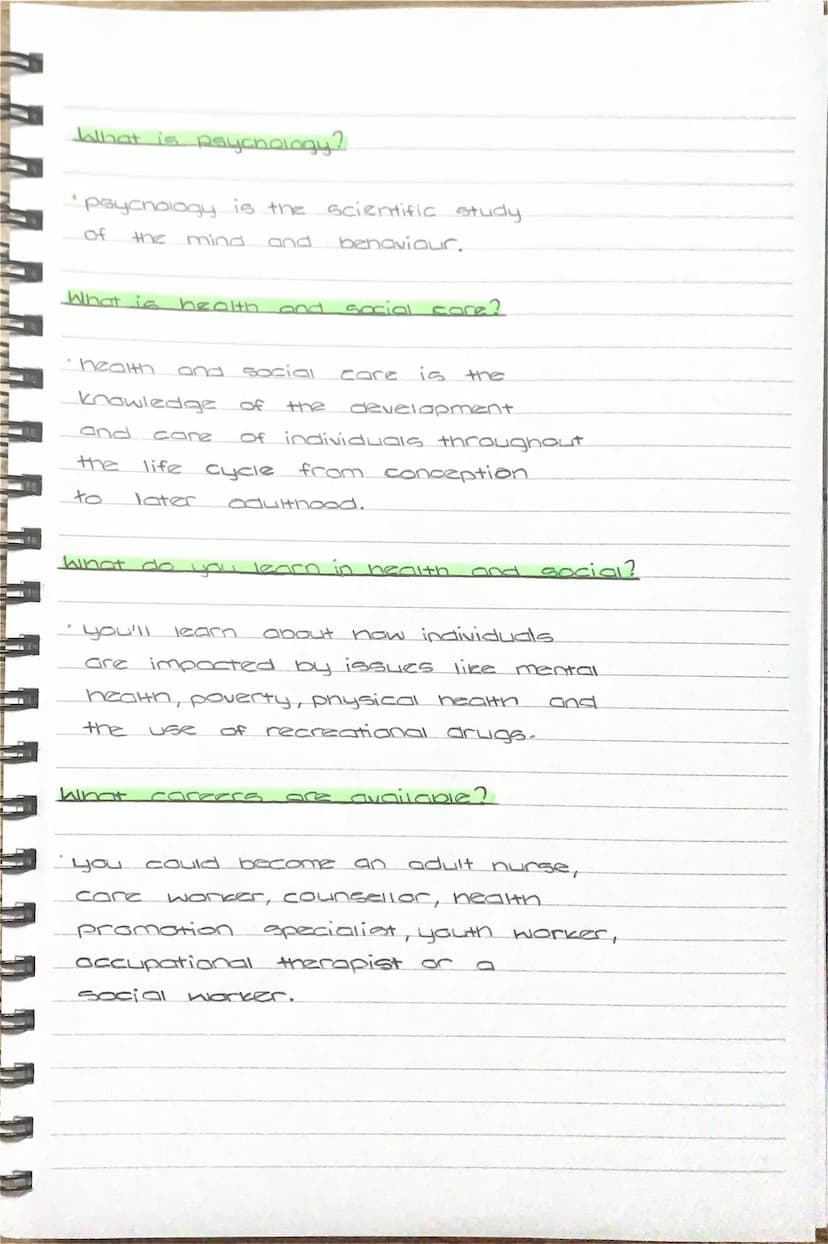 What is psychology?
· psychology is the scientific study
of the mind and behaviour.
What is health and social care?
· health and social care is the
knowledge of the development
and care of individuals throughout
the life cycle from conception
to later adulthood.
What do you learn in health and social?
· you'll learn about how individuals
are impacted by issues like mental
health, poverty, physical health and
the use of recreational drugs.
What careers are available?
· you could become an adult nurse,
care worker, counsellor, health
promotion specialist, youth worker,
occupational therapist or a
social worker.